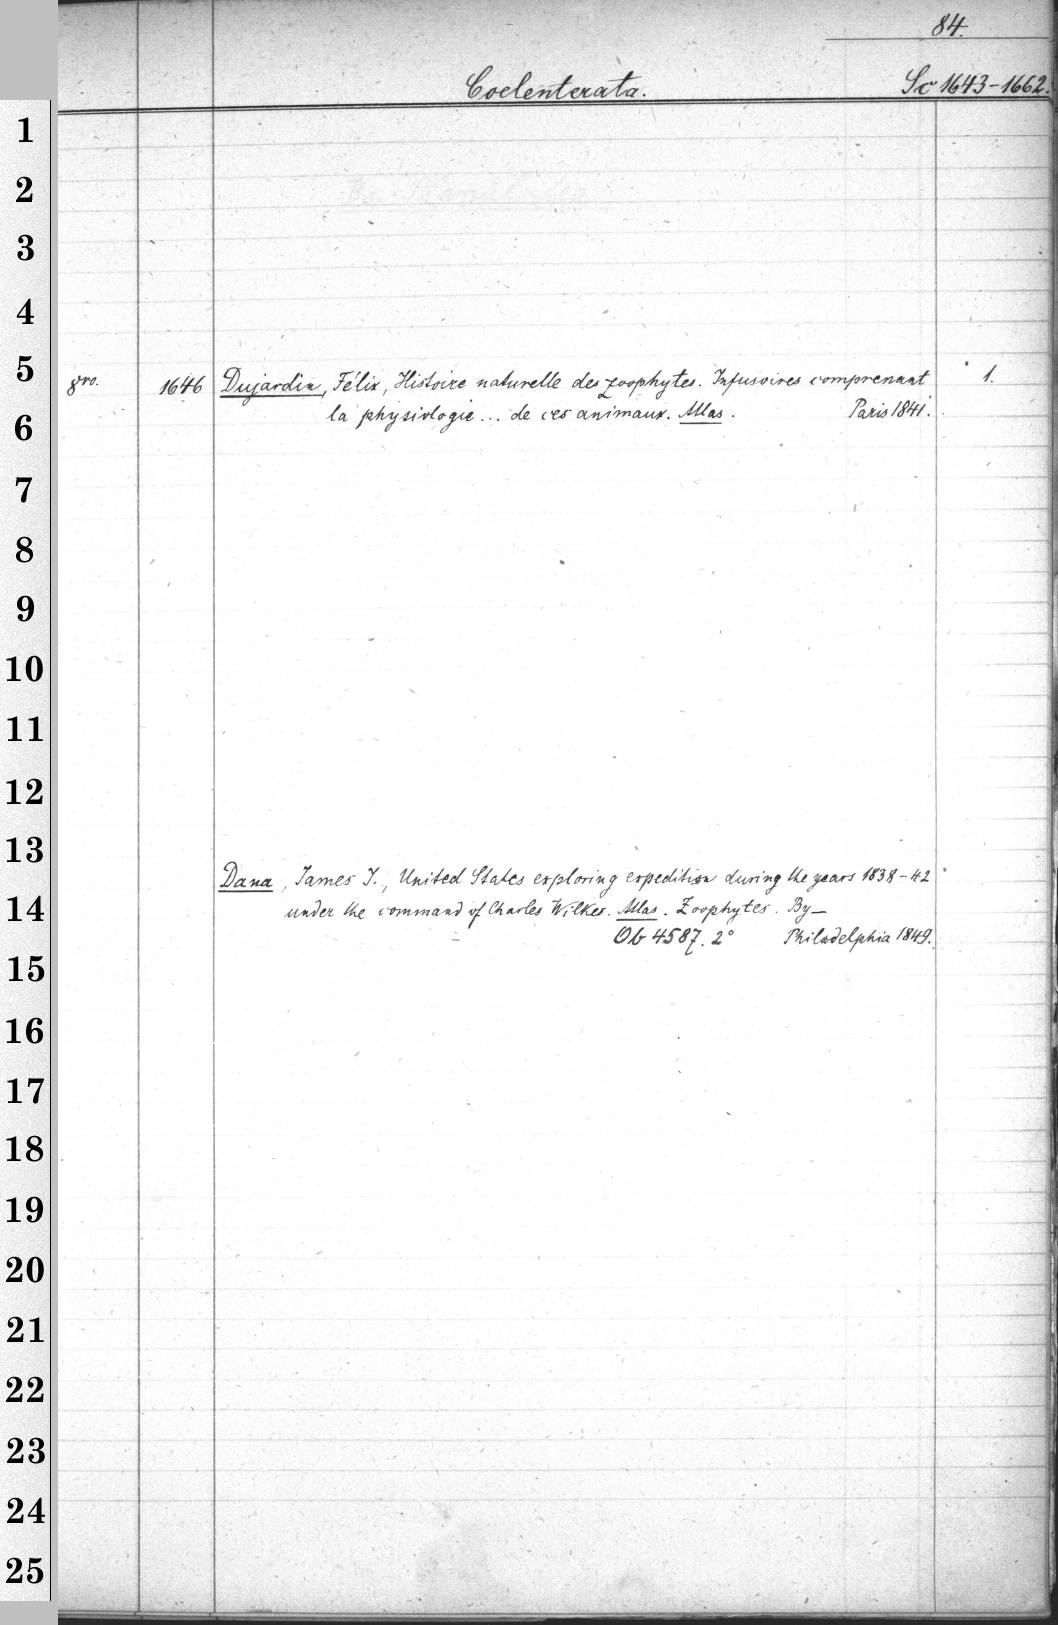 84.
Coelenterata. Sc 1643-1662.
1
2
3
4
5
8vo. 1646 Dujardin, Félix, Histoire naturelle des zoophytes. Infusoires comprenant 1.
la physiologie... de ces animaux. Atlas. Paris 1841.
6
7
8
9
10
11
12
13
Dana, James J., United States exploring expedition during the years 1838-42
14
under the command of Charles Wilkes. Atlas. Zoophytes. By—
Ob 4587. 2° Philadelphia 1849.
15
16
17
18
19
20
21
22
23
24
25